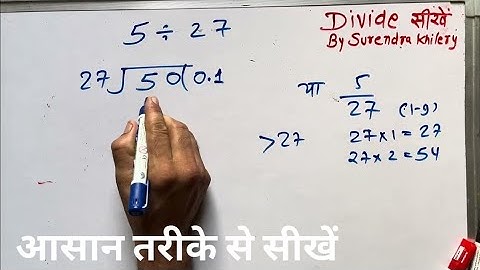 5 ÷ 27
Divide सीखें
By Surendra Khilery
27 50 0.1
या 5/27 (1-9)
>27 27×1=27
27×2=54
आसान तरीके से सीखें